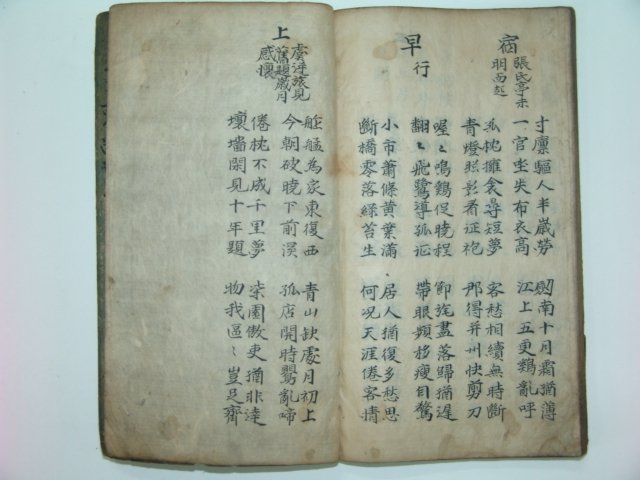 宿
張氏亭未
明而起
寸廩驅人半歲勞 劒南十月霜猶薄
一官坐失布衣高 江上五更鷄亂呼
孤枕擁衾尋短夢 客愁相續無時斷
青燈照影看征袍 那得并州快剪刀
早
行
喔〻鳴鷄促曉程 節旄盡落歸猶遲
翻〻飛鷺導孤征 帶眼頻移瘦自驚
小市蕭條黃葉滿 居人猶復多愁思
斷橋零落綠苔生 何況天涯倦客情
上
虞逆旅見
舊題歲月
感懷
舴艋為家東復西 青山缺處月初上
今朝破曉下前溪 孤店開時鶯亂啼
倦枕不成千里夢 柒園傲吏猶非達
壞墻閑見十年題 物我區〻豈足齊